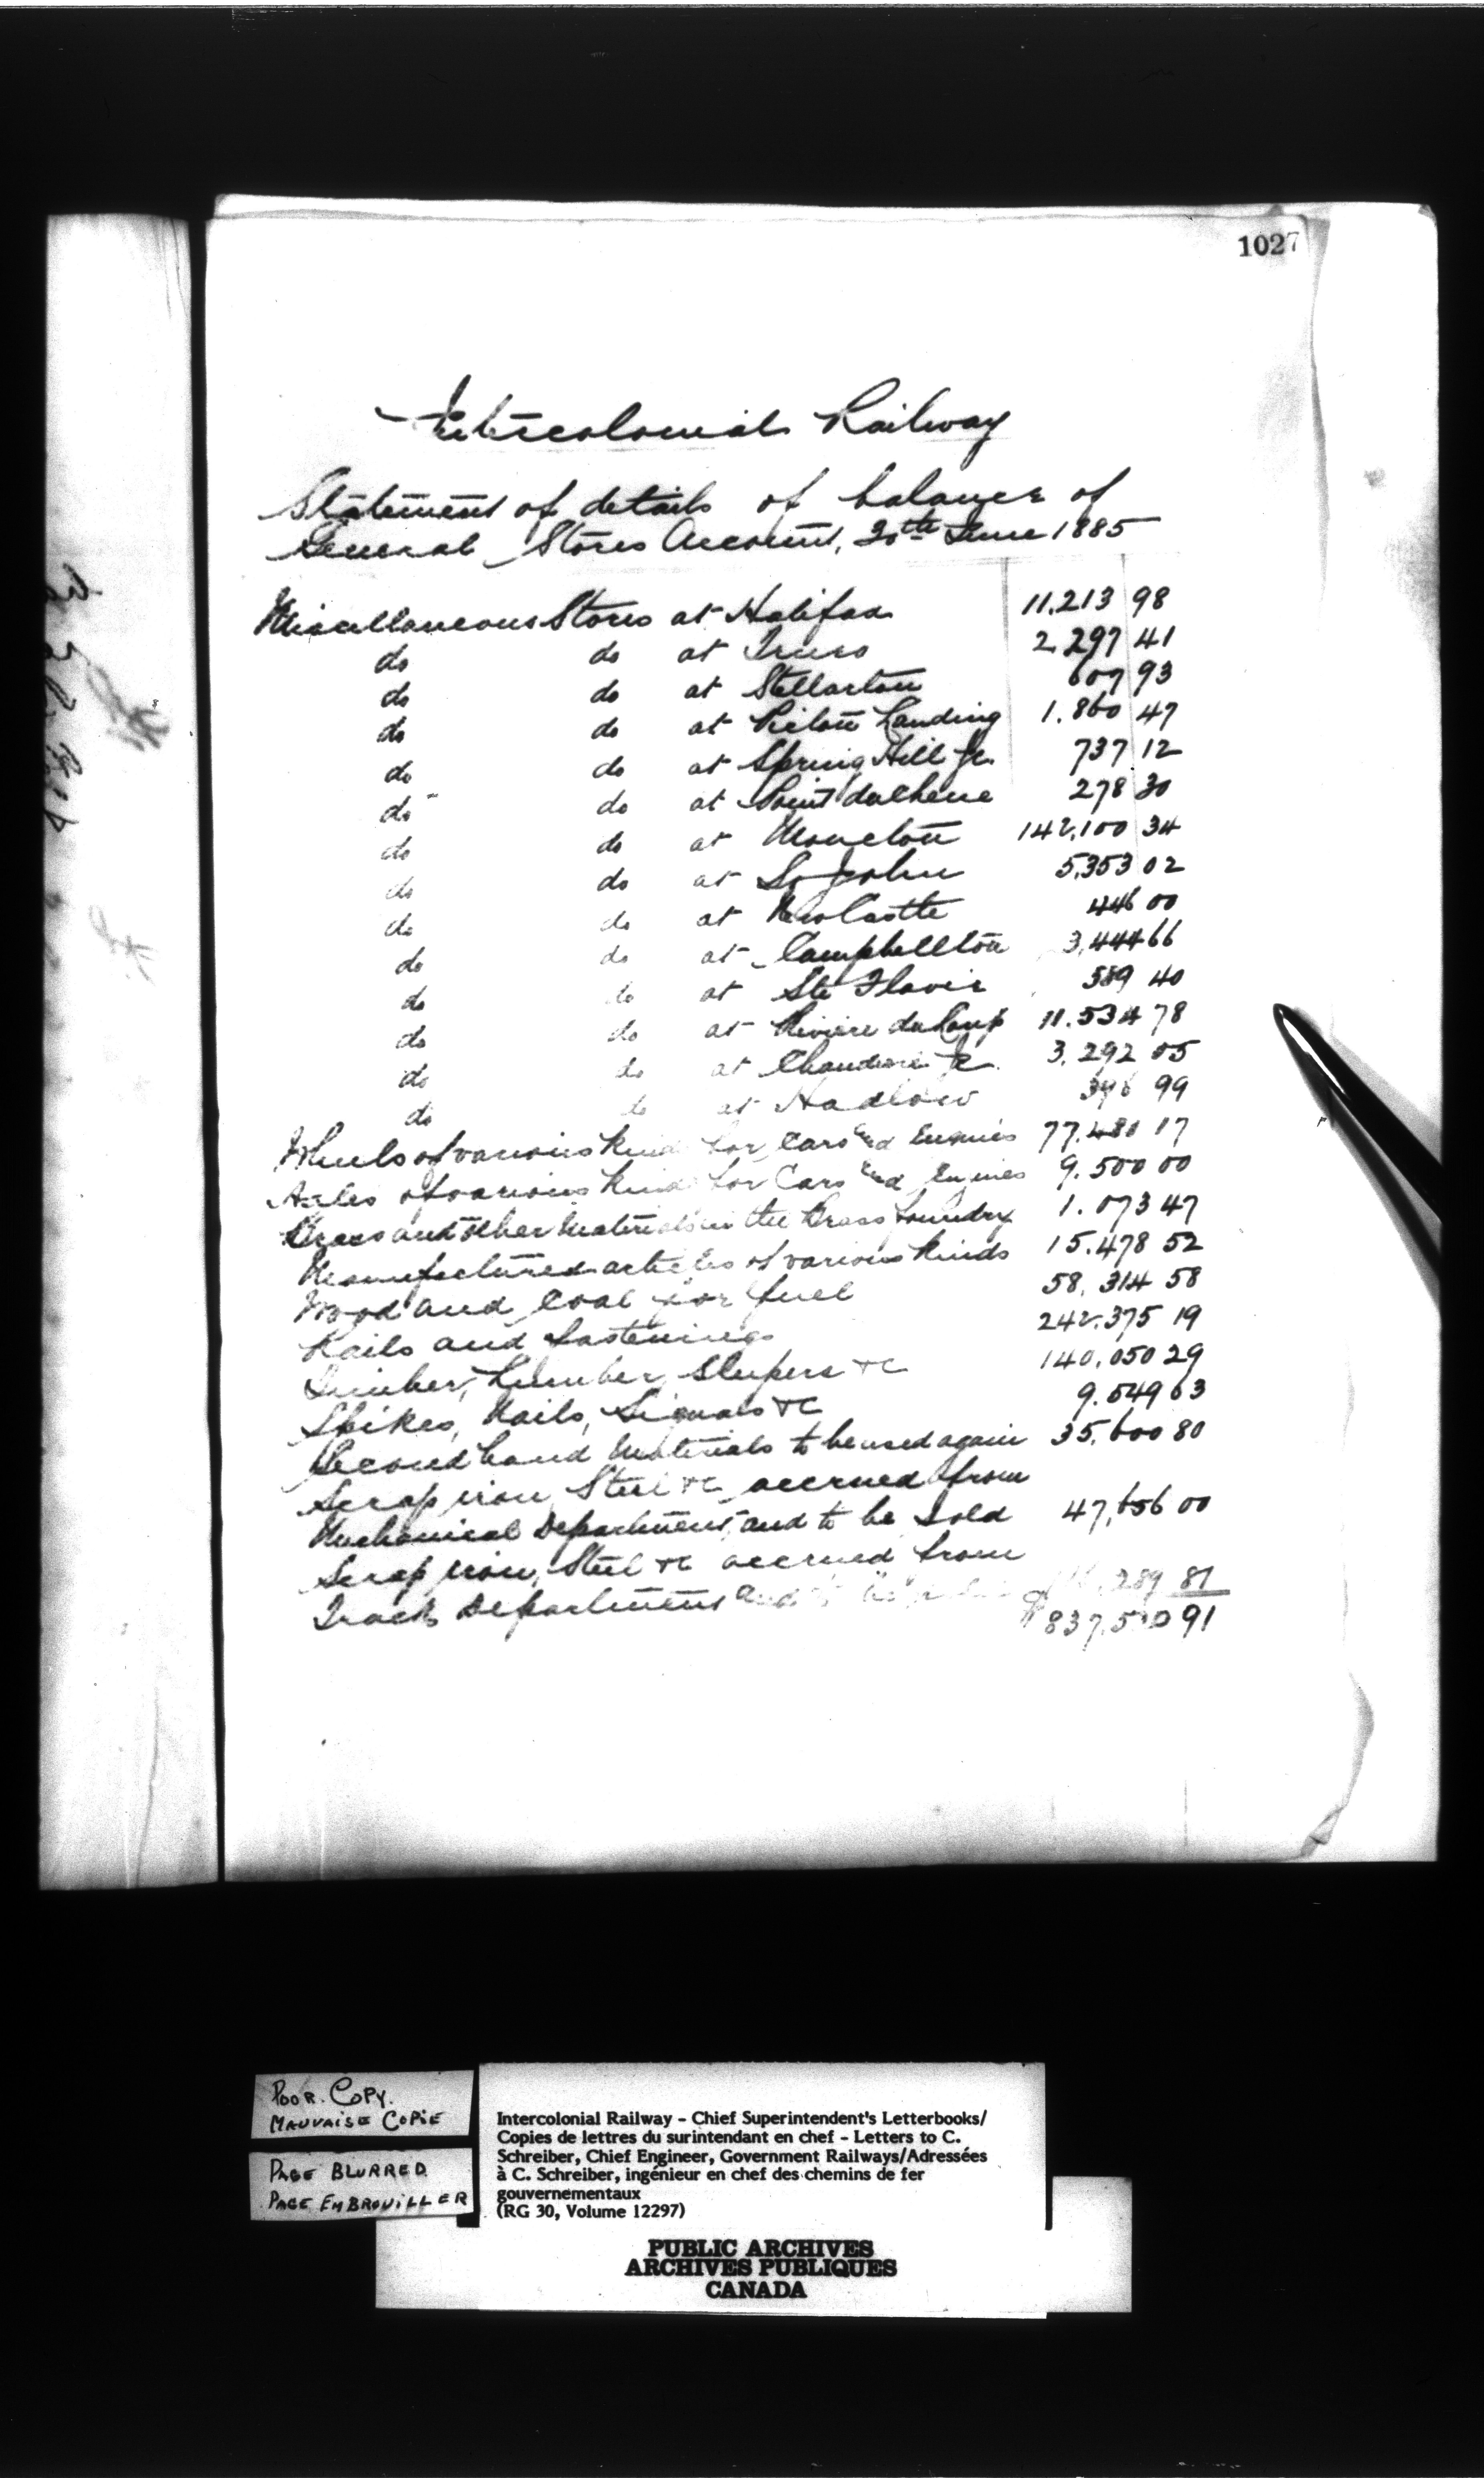 1027
Intercolonial Railway
Statement of details of balance of
General Stores Account, 30th June 1885
Miscellaneous Stores at Halifax 11.213 98
do do at Truro 2.297 41
do do at Stellarton 607 93
do do at Pictou Landing 1.860 47
do do at Spring Hill Jc. 737 12
do do at Point du Chene 278 30
do do at Moncton 142,100 34
do do at St John 5,353 02
do do at New Castle 446 00
do do at Campbellton 3,444 66
do do at Ste Flavie 589 40
do do at Riviere du Loup 11.534 78
do do at Chaudiere Jc. 3,292 05
do do at Hadlow 99
Wheels of various kinds for Cars and Engines 77,481 17
Axles of various kinds for Cars and Engines 9.500 00
Brass and other Materials in the Brass Foundry 1.073 47
Manufactured articles of various kinds 15.478 52
Wood and Coal for fuel 58,314 58
Rails and fastenings 242.375 19
Timber, Lumber, Sleepers &c 140,050 29
Spikes, Nails, Signals &c 9.549 63
Second hand Materials to be used again 35,600 80
Scrap iron, Steel &c accrued from
Mechanical Department and to be Sold 47,656 00
Scrap iron, Steel &c accrued from
Track Department and 289 81
$837,5 0 91
POOR COPY.
MAUVAISE COPIE
PAGE BLURRED
PAGE EMBROUILLER
Intercolonial Railway - Chief Superintendent's Letterbooks/
Copies de lettres du surintendant en chef - Letters to C.
Schreiber, Chief Engineer, Government Railways/Adressées
à C. Schreiber, ingénieur en chef des chemins de fer
gouvernementaux
(RG 30, Volume 12297)
PUBLIC ARCHIVES
ARCHIVES PUBLIQUES
CANADA